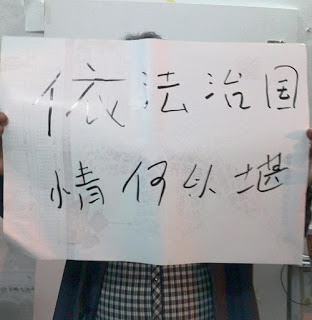 依法治国
情何以堪